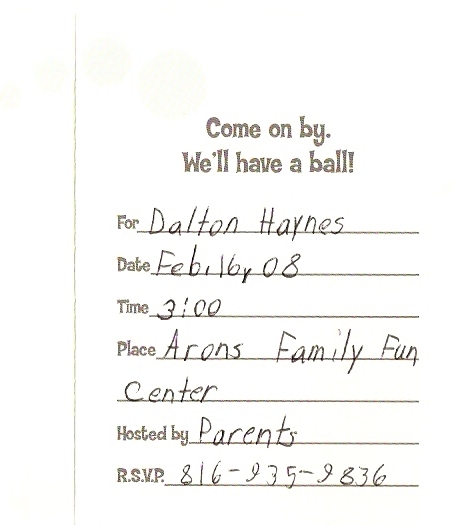 Come on by.
We'll have a ball!
For Dalton Haynes
Date Feb. 16, 08
Time 3:00
Place Arons Family Fun
Center
Hosted by Parents
R.S.V.P. 816-935-9836